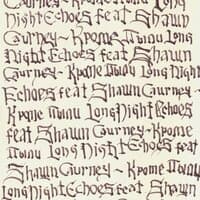 Gurney~ Kpome Long
Night Echoes feat Shawn
Gurney~ Kpome Long
Night Echoes feat Shawn
Gurney~ Kpome Long Night
Echoes feat Shawn Gurney ~
Kpome Long Night Echoes
feat Shawn Gurney~ Kpome
Long Night Echoes feat
Shawn Gurney ~ Kpome
Long Night Echoes feat Shawn